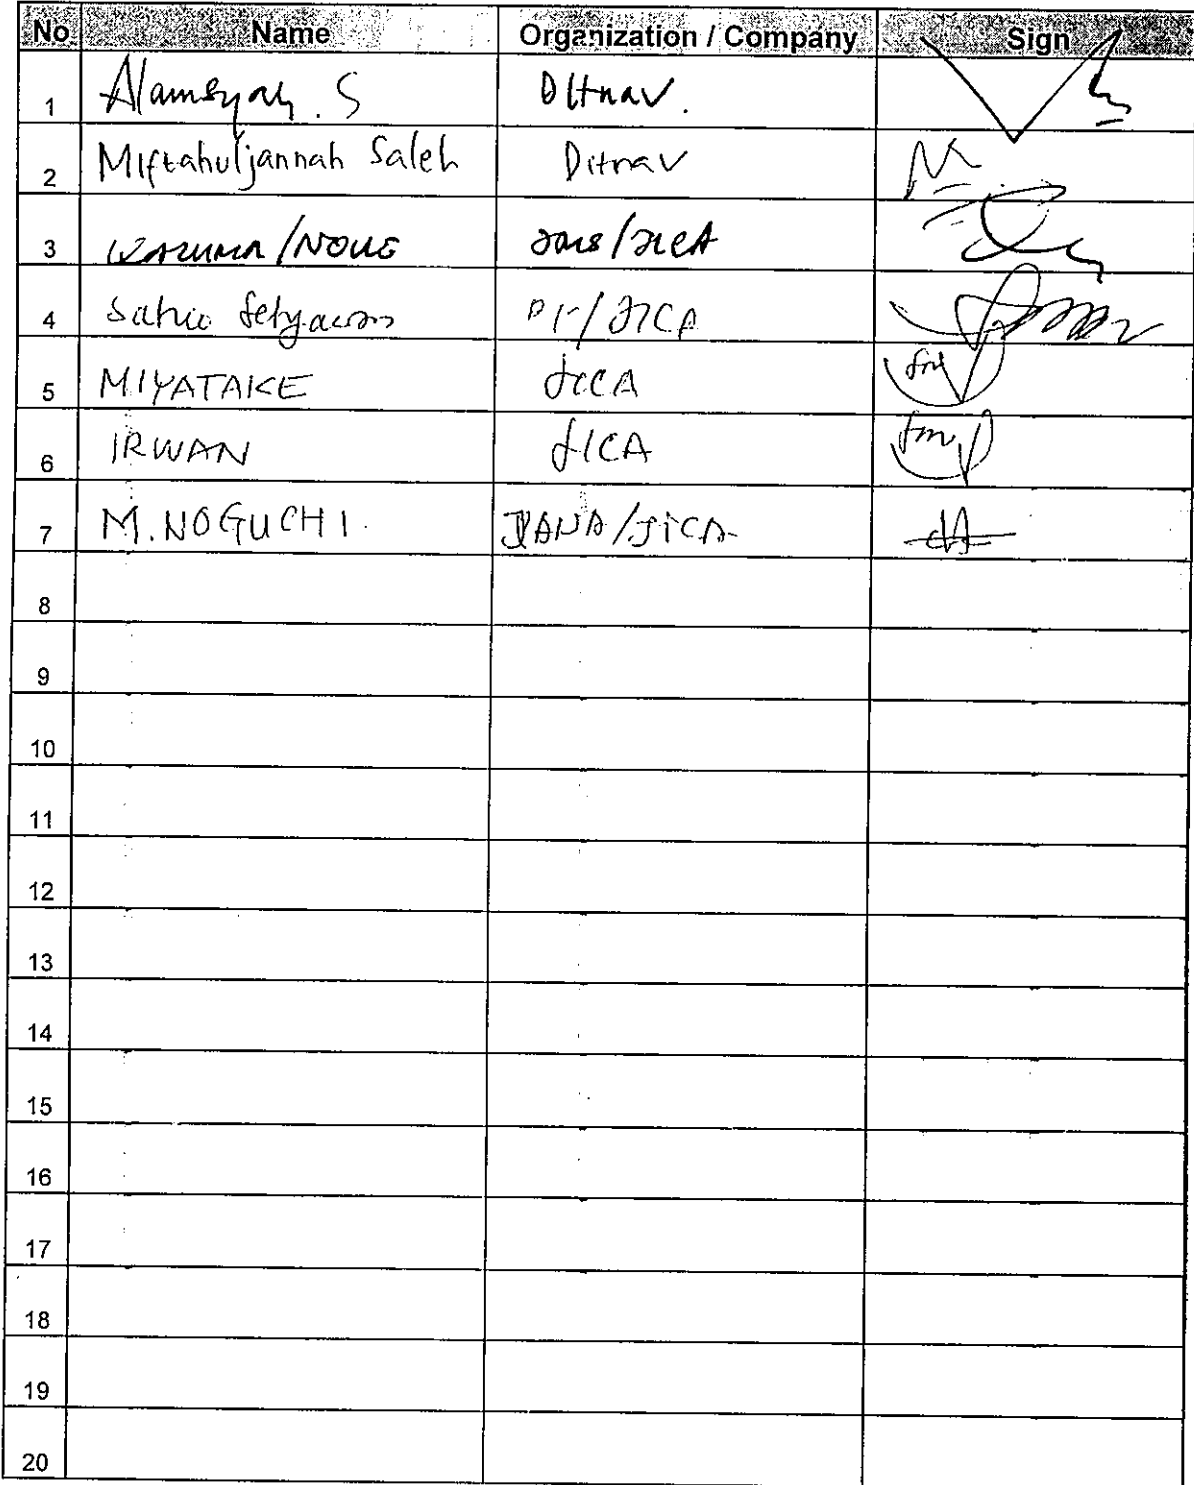 No Name Organization / Company Sign
1 Alamsyah. S Ditnav.
2 Miftahuljannah Saleh Ditnav
3 KAZUMA INOUE /JICA
4 Setyawan /JICA
5 MIYATAKE JICA
6 IRWAN JICA
7 M. NOGUCHI. /JICA
8
9
10
11
12
13
14
15
16
17
18
19
20